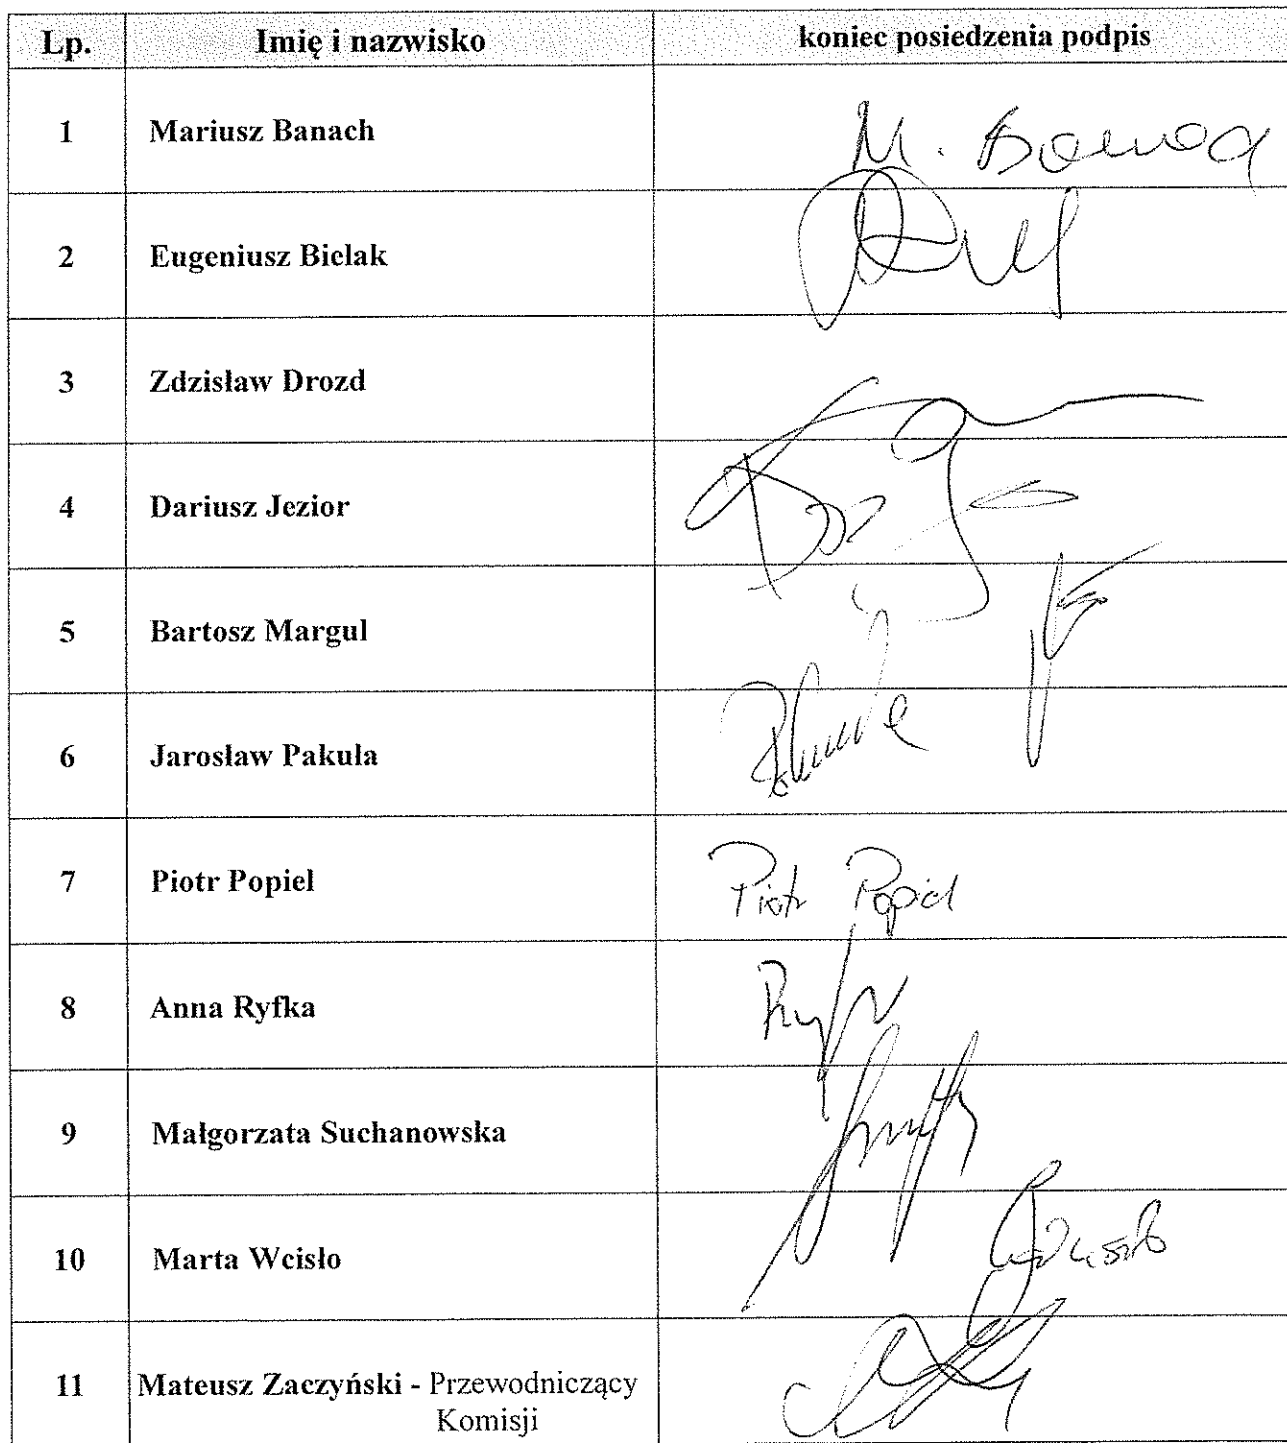 Lp. Imię i nazwisko koniec posiedzenia podpis
1 Mariusz Banach M. Banach
2 Eugeniusz Bielak
3 Zdzisław Drozd
4 Dariusz Jezior
5 Bartosz Margul
6 Jarosław Pakuła
7 Piotr Popiel Piotr Popiel
8 Anna Ryfka
9 Małgorzata Suchanowska
10 Marta Wcisło
11 Mateusz Zaczyński - Przewodniczący
Komisji